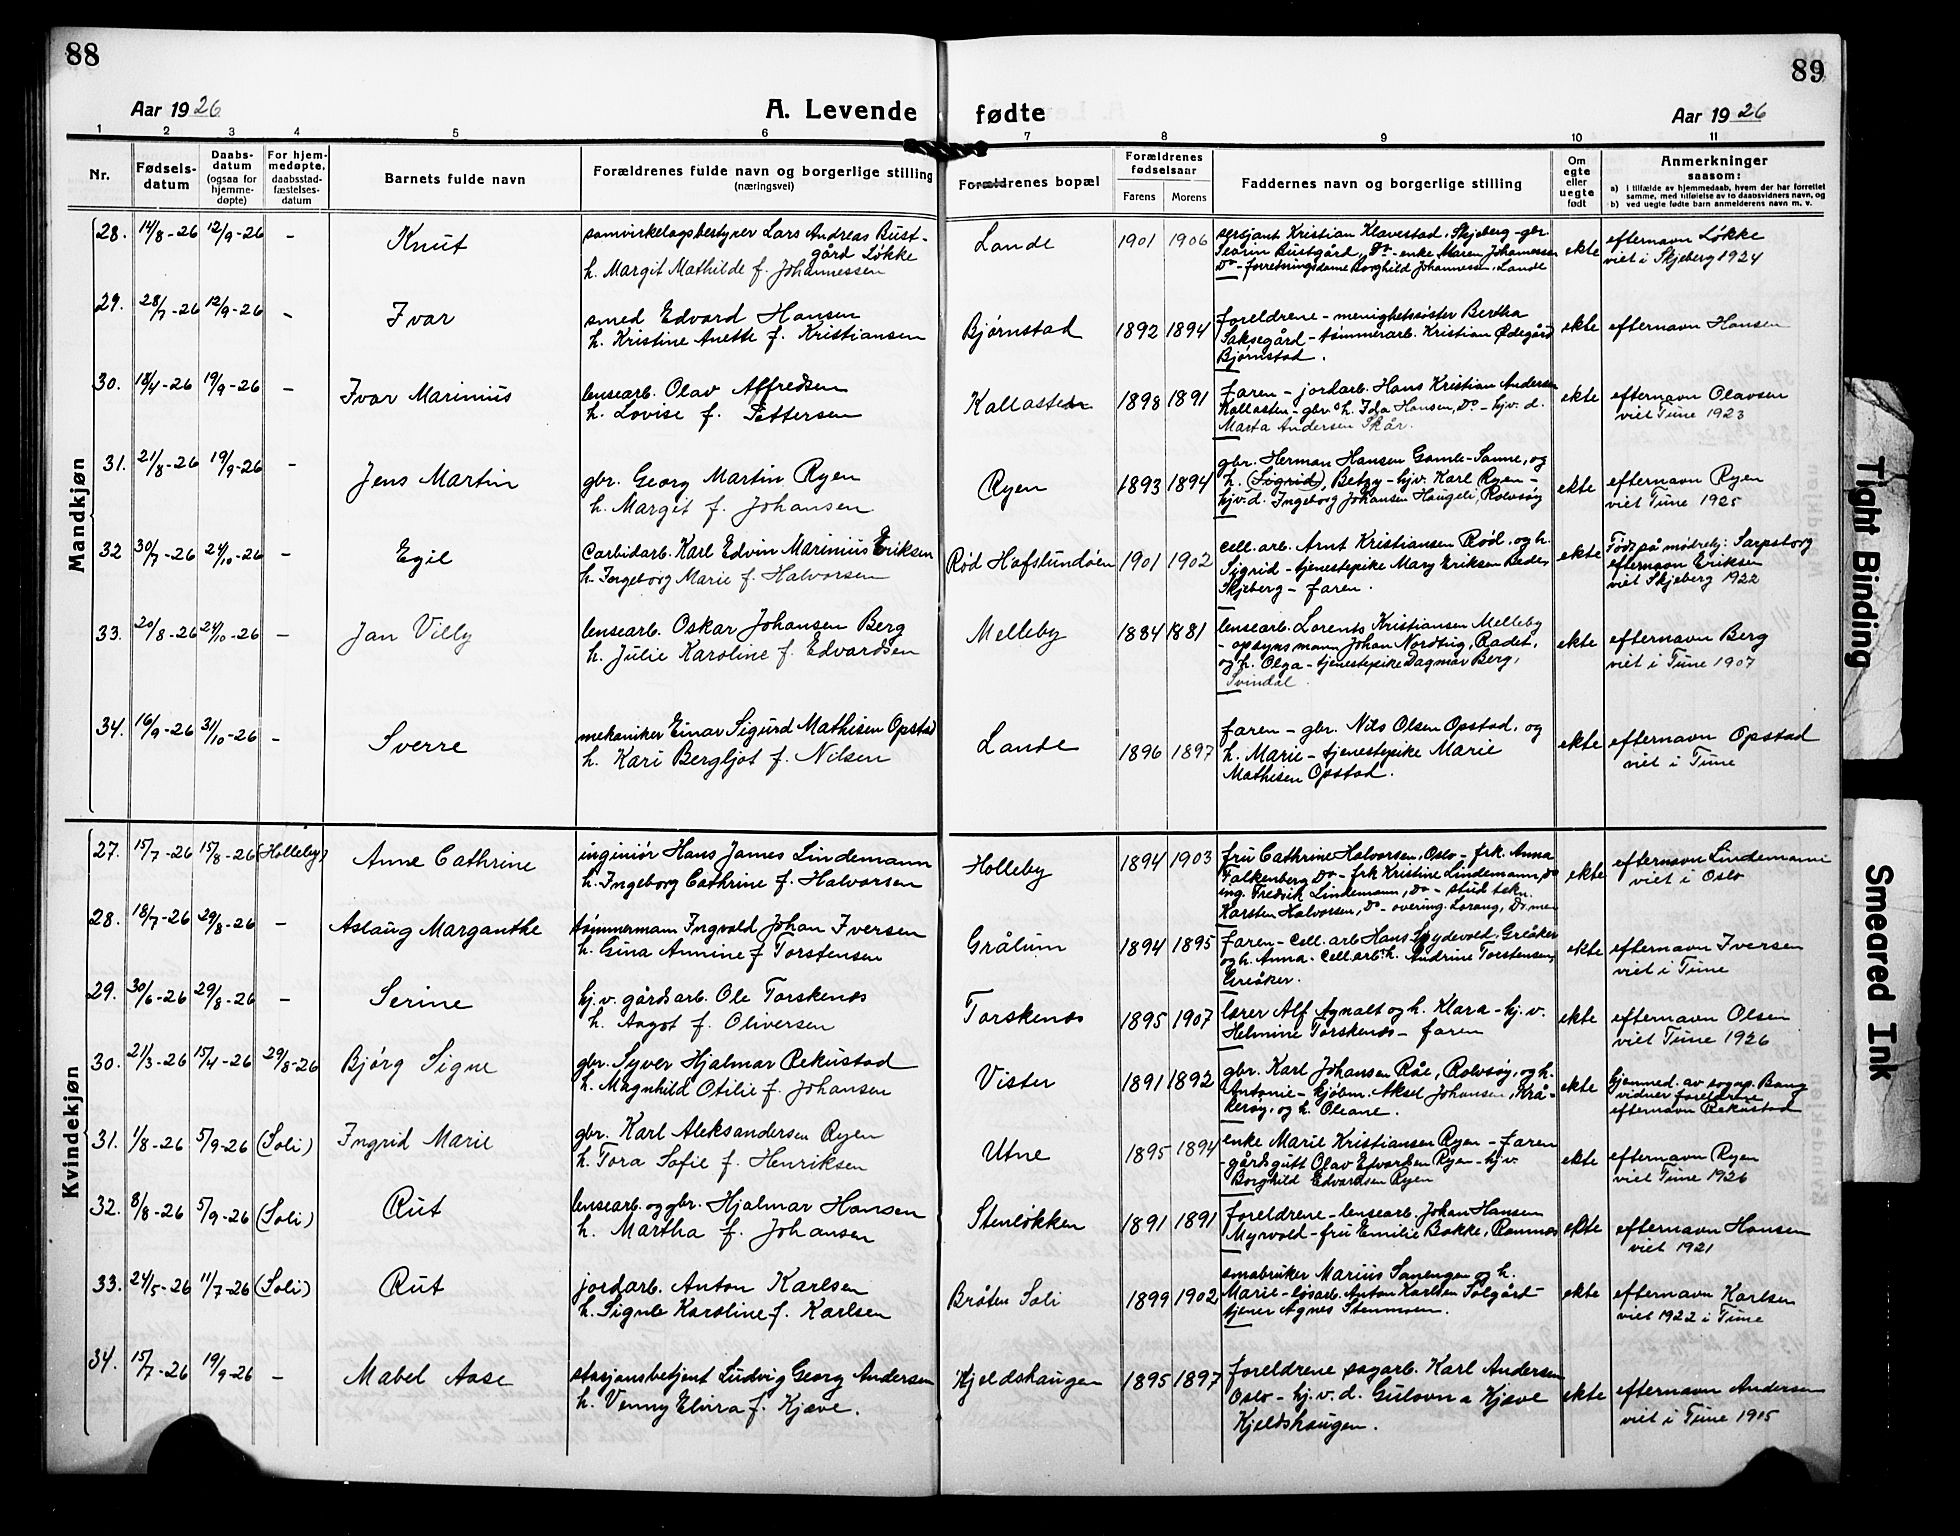 88
89
Aar 1926
A. Levende fødte
Aar 1926
1 2 3 4 5 6 7 8 9 10 11
Nr.
Fødsels-
datum
Daabs-
datum
(ogsaa for
hjemme-
døpte)
For hjem-
medøpte,
daabsstad-
fæstelses-
datum
Barnets fulde navn
Forældrenes fulde navn og borgerlige stilling
(næringsvei)
Forældrenes bopæl
Forældrenes
fødselsaar
Farens Morens
Faddernes navn og borgerlige stilling
Om
egte
eller
uegte
født
Anmerkninger
saasom:
a) i tilfælde av hjemmedaab, hvem der har forrettet
samme, med tilføielse av to daabsvidners navn, og
b) ved uegte fødte barn anmelderens navn m. v.
Mandkjøn
28. 14/8-26 12/9-26 - Knut
samvirkelagsbestyrer Lars Andreas Bust-
gård Løkke
h. Margit Mathilde f. Johannessen
Lande 1901 1906
sersjant Kristian Klavestad, Skjeberg - gbr.
Bustgård, Do - enke Maren Johannessen
Do - forretningsdame Borghild Johannessen, Lande
ekte
efternavn Løkke
viet i Skjeberg 1924
29. 28/7-26 12/9-26 - Ivar
smed Edvard Hansen
h. Kristine Anette f. Kristiansen
Bjørnstad 1892 1894
foreldrene - menighetssøster Bertha
Saksegård - tømmerarb. Kristian Ødegård
Bjørnstad.
ekte
efternavn Hansen
30. 18/4-26 19/9-26 - Ivar Marinius
lensearb. Olav Alfredsen
h. Lovise f. Pettersen
Kallasten 1898 1891
faren - jordarb. Hans Kristian Andersen
Kallasten - gbr. o h. Ida Hansen, Do - hjv. d.
Marta Andersen Skår.
ekte
efternavn Olavsen
viet Tune 1923
31. 21/8-26 19/9-26 - Jens Martin
gbr. Georg Martin Ryen
h. Margit f. Johansen
Ryen 1893 1894
gbr. Herman Hansen Gamle-Sanne, og
h. (Sigrid) Betzy - hjv. Karl Ryen -
hjv. d. Ingeborg Johansen Haugeli, Rolvsøy
ekte
efternavn Ryen
viet Tune 1925
32 30/7-26 24/10-26 - Egil
Carbidarb. Karl Edvin Marinius Eriksen
h. Ingeborg Marie f. Halvorsen
Rød Hafslundsøen 1901 1902
cell. arb. Arnt Kristiansen Rød, og h.
Sigrid - tjenestepike Mary Eriksen
Skjeberg - faren.
ekte
Født på mødrehj: Sarpsborg
efternavn Eriksen
viet Skjeberg 1922
33. 20/8-26 24/10-26 - Jan Villy
lensearb. Oskar Johansen Berg
h. Julie Karoline f. Edvardsen
Melleby 1884 1881
lensearb. Lorents Kristiansen Melleby
- opsynsmann Johan Nordtug, Radet,
og h. Olga - tjenestepike Dagmar Berg,
Svindal.
ekte
efternavn Berg
viet i Tune 1907
34. 16/9-26 31/10-26 - Sverre
mekaniker Einar Sigurd Mathisen Opstad
h. Kari Bergljot f. Nilsen
Lande 1896 1897
faren - gbr. Nils Olsen Opstad, og
h. Marie - tjenestepike Marie
Mathisen Opstad.
ekte
efternavn Opstad
viet i Tune
Kvindekjøn
27. 15/7-26 15/8-26 (Holleby) Anne Cathrine
inginiør Hans James Lindemann
h. Ingeborg Cathrine f. Halvorsen
Holleby 1894 1903
fru Cathrine Halvorsen, Oslo - frk. Anna
Falkenberg Do - frk Kristine Lindemann, Do
ing. Fredrik Lindemann, Do - stud tekn.
Karsten Halvorsen, Do - overing. Lorang,
ekte
efternavn Lindemann
viet i Oslo
28. 18/7-26 29/8-26 - Aslaug Marganthe
tømmermann Ingvald Johan Iversen
h. Gina Annine f Torstensen
Grålum 1894 1895
faren - Cell. arb Hans Spydevold, Greåker
og h. Anna - Cell. arb. h. Andrine Torstensen,
Greåker.
ekte
efternavn Iversen
viet i Tune
29. 30/6-26 29/8-26 - Serine
hj. v. gårdsarb. Ole Torskenæs
h. Aagot f. Oliversen
Torskenæs 1895 1907
lærer Alf Agnalt og h. Klara - hj. v.
Helmine Torskenæs - faren
ekte
efternavn Olsen
viet Tune 1926
30. 21/3-26 15/4-26 29/8-26 Bjørg Signe
gbr. Syver Hjalmar Rekustad
h. Magnhild Otilie f. Johansen
Vister 1891 1892
gbr. Karl Johansen Råe, Rolvsøy, og h.
Antonie - kjøbm. Aksel Johansen, Krå-
kerøy, og h. Oleane.
ekte
hjemmed. av sogep. Bang
vidner foreldrene
efternavn Rekustad
31. 1/8-26 5/9-26 (Soli) Ingrid Marie
gbr. Karl Aleksandersen Ryen
h. Tora Sofie f. Henriksen
Utne 1895 1894
enke Marie Kristiansen Ryen - faren
- gårdsgutt Olav Edvardsen Ryen - hjv.
Borghild Edvardsen Ryen
ekte
efternavn Ryen
viet i Tune 1926
32. 8/8-26 5/9-26 (Soli) Rut
lensearb. og gbr. Hjalmar Hansen
h. Martha f. Johansen
Stenløkken 1891 1891
foreldrene - lensearb. Johan Hansen
Myrvold - fru Emilie Bakke, Ramnæs
ekte
efternavn Hansen
viet 1921
33. 24/5-26 11/7-26 (Soli) Rut
jordarb. Anton Karlsen
h. Signe Karoline f. Karlsen
Bråten Soli 1899 1902
småbruker Marius Sanengen og h.
Marie - løsarb. Anton Karlsen Solgård -
tjener Agnes Stenmoen.
ekte
efternavn Karlsen
viet 1922 i Tune
34. 15/7-26 19/9-26 - Mabel Aase
stasjonsbetjent Ludvig Georg Andersen
h. Venny Elvira f. Kjæve.
Kjeldshaugen 1895 1897
foreldrene sagarb. Karl Andersen
Oslo - hj. v. d. Gulovna Kjæve
Kjeldshaugen.
ekte
efternavn Andersen
viet i Tune 1915
Tight Binding
Smeared Ink